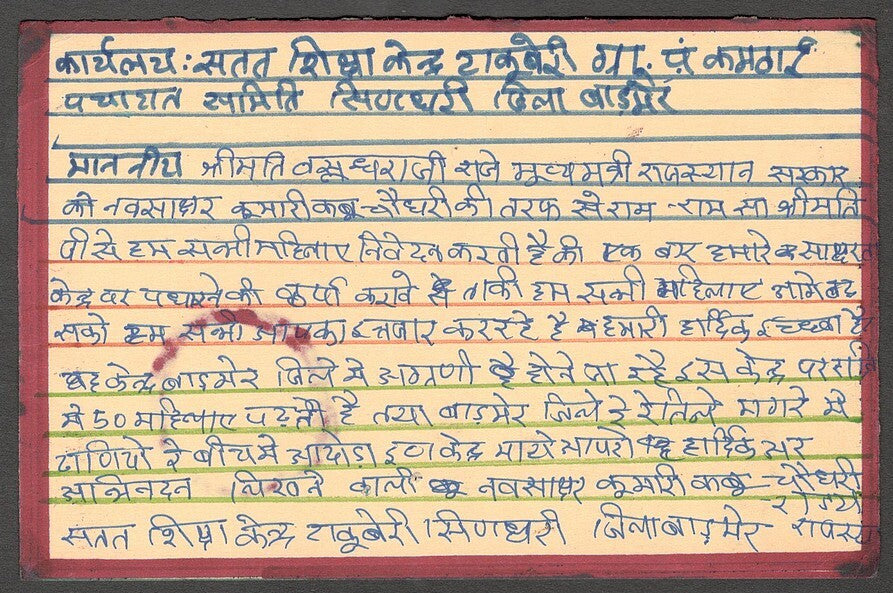 कार्यलय: सतत शिक्षा केन्द्र टाकूबेरी ग्रा. पं कमठाई
पचायत समिति सिणधरी जिला बाड़मेर
माननीय श्रीमति वसुध्धराजी राजे मुख्यमत्री राजस्थान सरकार
को नवसाक्षर कुमारी कबु चौधरी की तरफ से राम-राम सा श्रीमति
जी से हम सभी महिलाए निवेदन करती है की एक बार हमारे साक्षरता
केन्द्र पर पधारने की कृर्पा करावे ताकी हम सभी महिलाए आगे बढ
सको हम सभी आपका इन्तजार कर रहे है हमारी हार्दिक इच्छा है
यह केन्द्र बाड़मेर जिले मे अग्रणी होने जा रहा है इस केन्द्र पर
मे 50 महिलाए पढ़ती है तथा बाड़मेर जिले रे रेतिले मगरे मे
ढाणियो रे बीच मे इण केन्द्र माथे आपरो हार्दिक
अभिनदन लिखने वाली नवसाक्षर कुमारी कबु चौधरी
सतत शिक्षा केन्द्र टाकूबेरी सिणधरी जिला बाड़मेर राजस्थ